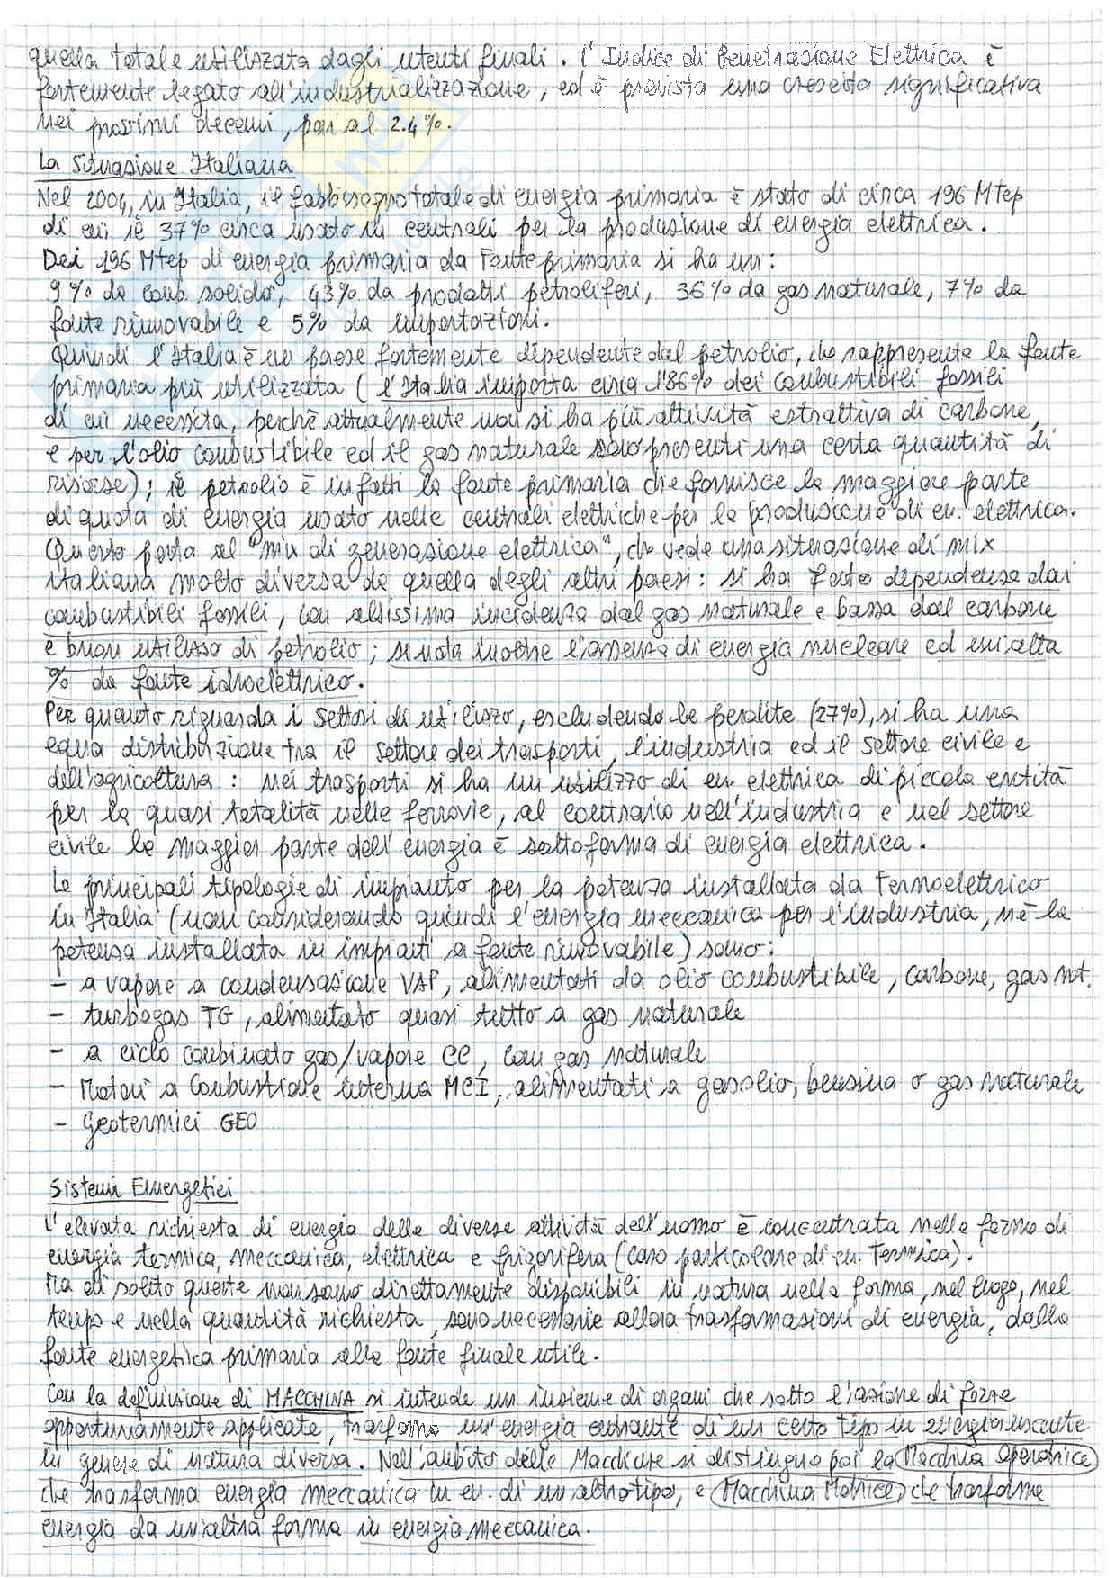 quella totale utilizzata dagli utenti finali. L'Indice di Penetrazione Elettrica è
fortemente legato all'industrializzazione, ed è prevista una crescita significativa
nei prossimi decenni, pari al 2.4%.
La Situazione Italiana
Nel 2004, in Italia, il fabbisogno totale di energia primaria è stato di circa 196 Mtep
di cui il 37% circa usato in centrali per la produzione di energia elettrica.
Dei 196 Mtep di energia primaria da Fonte primaria si ha un:
9% da comb. solido, 43% da prodotti petroliferi, 36% da gas naturale, 7% da
fonte rinnovabile e 5% da importazioni.
Quindi l'Italia è un paese fortemente dipendente dal petrolio, che rappresenta la fonte
primaria più utilizzata (l'Italia importa circa l'86% dei combustibili fossili
di cui necessita, perchè attualmente non si ha più attività estrattiva di carbone,
e per l'olio combustibile ed il gas naturale sono presenti una certa quantità di
risorse); il petrolio è infatti la fonte primaria che fornisce la maggiore parte
di quota di energia usato nelle centrali elettriche per la produzione di en. elettrica.
Questo porta al "mix di generazione elettrica", che vede una situazione di mix
italiana molto diversa da quella degli altri paesi: si ha forte dipendenza dai
combustibili fossili, con altissima incidenza dal gas naturale e bassa dal carbone
e buon utilizzo di petrolio; si nota inoltre l'assenza di energia nucleare ed un'alta
% da fonte idroelettrico.
Per quanto riguarda i settori di utilizzo, escludendo le perdite (27%), si ha una
equa distribuzione tra il settore dei trasporti, l'industria ed il settore civile e
dell'agricoltura: nei trasporti si ha un utilizzo di en. elettrica di piccola entità
per la quasi totalità nelle ferrovie, al contrario nell'industria e nel settore
civile la maggior parte dell'energia è sottoforma di energia elettrica.
Le principali tipologie di impianto per la potenza installata da Termoelettrico
in Italia (non considerando quindi l'energia meccanica per l'industria, nè la
potenza installata in impianti a fonte rinnovabile) sono:
- a vapore a condensazione VAP, alimentati da olio combustibile, carbone, gas nt.
- turbogas TG, alimentato quasi tutto a gas naturale
- a ciclo combinato gas/vapore CC, con gas naturale
- Motori a Combustione interna MCI, alimentati a gasolio, benzina o gas naturale
- Geotermici GEO
Sistemi Energetici
L'elevata richiesta di energia delle diverse attività dell'uomo è concentrata nella forma di
energia termica, meccanica, elettrica e frigorifera (caso particolare di en. Termica).
Ma di solito queste non sono direttamente disponibili in natura nella forma, nel luogo, nel
tempo e nella quantità richiesta, sono necessarie allora trasformazioni di energia, dalla
fonte energetica primaria alla fonte finale utile.
Con la definizione di MACCHINA si intende un insieme di organi che sotto l'azione di forze
opportunamente applicate, trasforma un'energia entrante di un certo tipo in energia uscente
in genere di natura diversa. Nell'ambito delle Macchine si distingue poi la Macchina Operatrice
che trasforma energia meccanica in en. di un altro tipo, e Macchina Motrice che trasforma
energia da un'altra forma in energia meccanica.